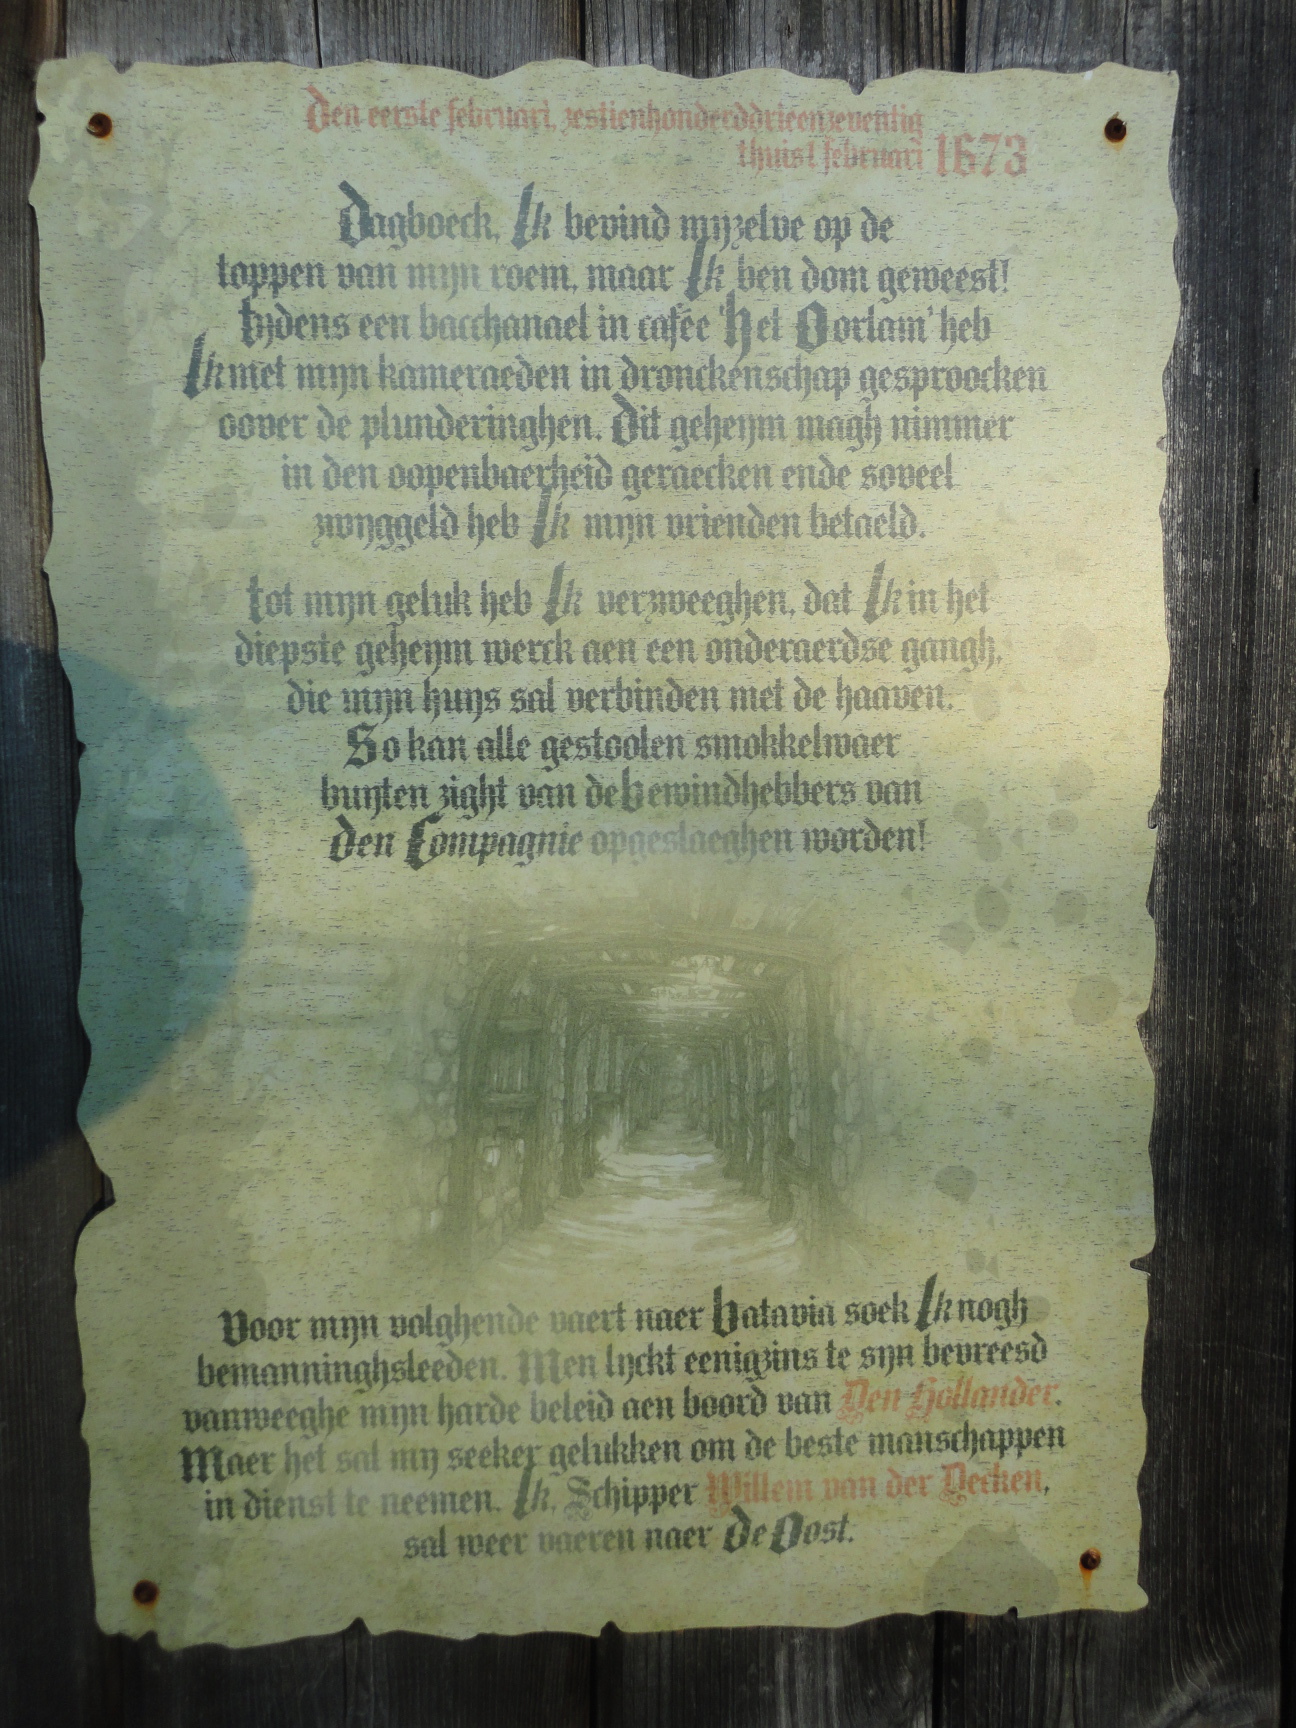 Den eerste februari, zestienhonderddrieenzeventig
thuis 1 februari 1673
Dagboeck, Ik bevind mijzelve op de
toppen van mijn roem, maar Ik ben dom geweest!
tijdens een bacchanael in cafée 'het Oorlam' heb
Ik met mijn kameraeden in dronckenschap gesproocken
oover de plunderinghen. Dit geheijm magh nimmer
in den oopenbaerheid geraecken ende soveel
zwijggeld heb Ik mijn vrienden betaeld.
tot mijn geluk heb Ik verzweeghen, dat Ik in het
diepste geheijm werck aen een onderaerdse gangh,
die mijn huijs sal verbinden met de haaven.
So kan alle gestoolen smokkelwaer
buijten zight van de bewindhebbers van
den Compagnie opgeslaeghen worden!
Voor mijn volghende vaert naer batavia soek Ik nogh
bemanninghsleeden. Men lijckt eenigzins te sijn bevreesd
vanweeghe mijn harde beleid aen boord van Den Hollander.
Maer het sal mij seeker gelukken om de beste manschappen
in dienst te neemen. Ik, Schipper Willem van der Decken,
sal weer vaeren naer de Oost.